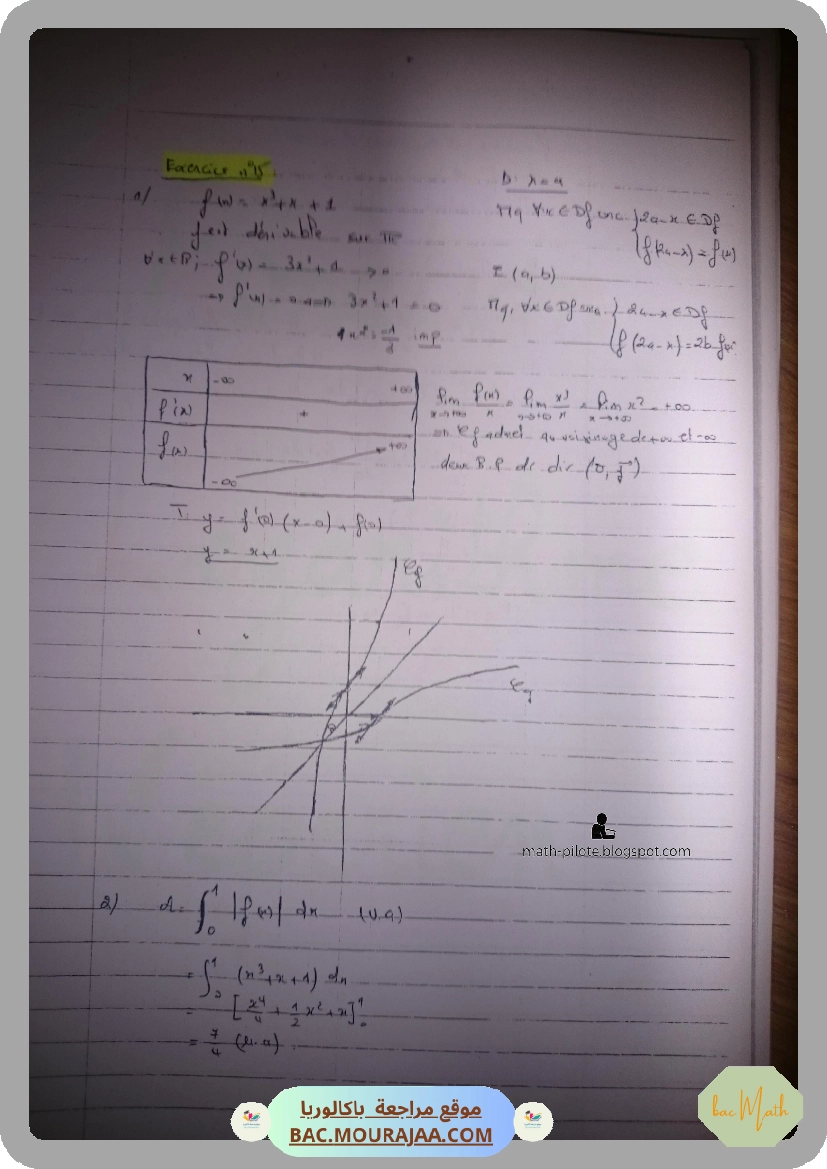 Exercice n°15
1/ f(x) = x³+x+1
f est dérivable sur IR
∀x∈IR; f'(x) = 3x²+1 >0
=> f'(x)=0 3x²+1=0
imp
D: x=a
Mq ∀x∈Df on a { 2a-x∈Df
f(2a-x)=f(x)
I(a,b)
Mq, ∀x∈Df on a { 2a-x∈Df
f(2a-x)=2b-f(x)
x -∞ +∞
f'(x) +
f(x) -∞ +∞
lim x→+∞ f(x)/x = lim x→+∞ x³/x = lim x→+∞ x² = +∞
=> Cf admet au voisinage de +∞ et -∞
deux B.P de dir (O, j⃗)
T: y = f'(0)(x-0)+f(0)
y = x+1
Cf
math-pilote.blogspot.com
2) A = ∫₀¹ |f(x)| dx (u.a)
= ∫₀¹ (x³+x+1) dx
= [x⁴/4 + 1/2 x² + x]₀¹
= 7/4 (u.a).
موقع مراجعة باكالوريا
BAC.MOURAJAA.COM
bac Math